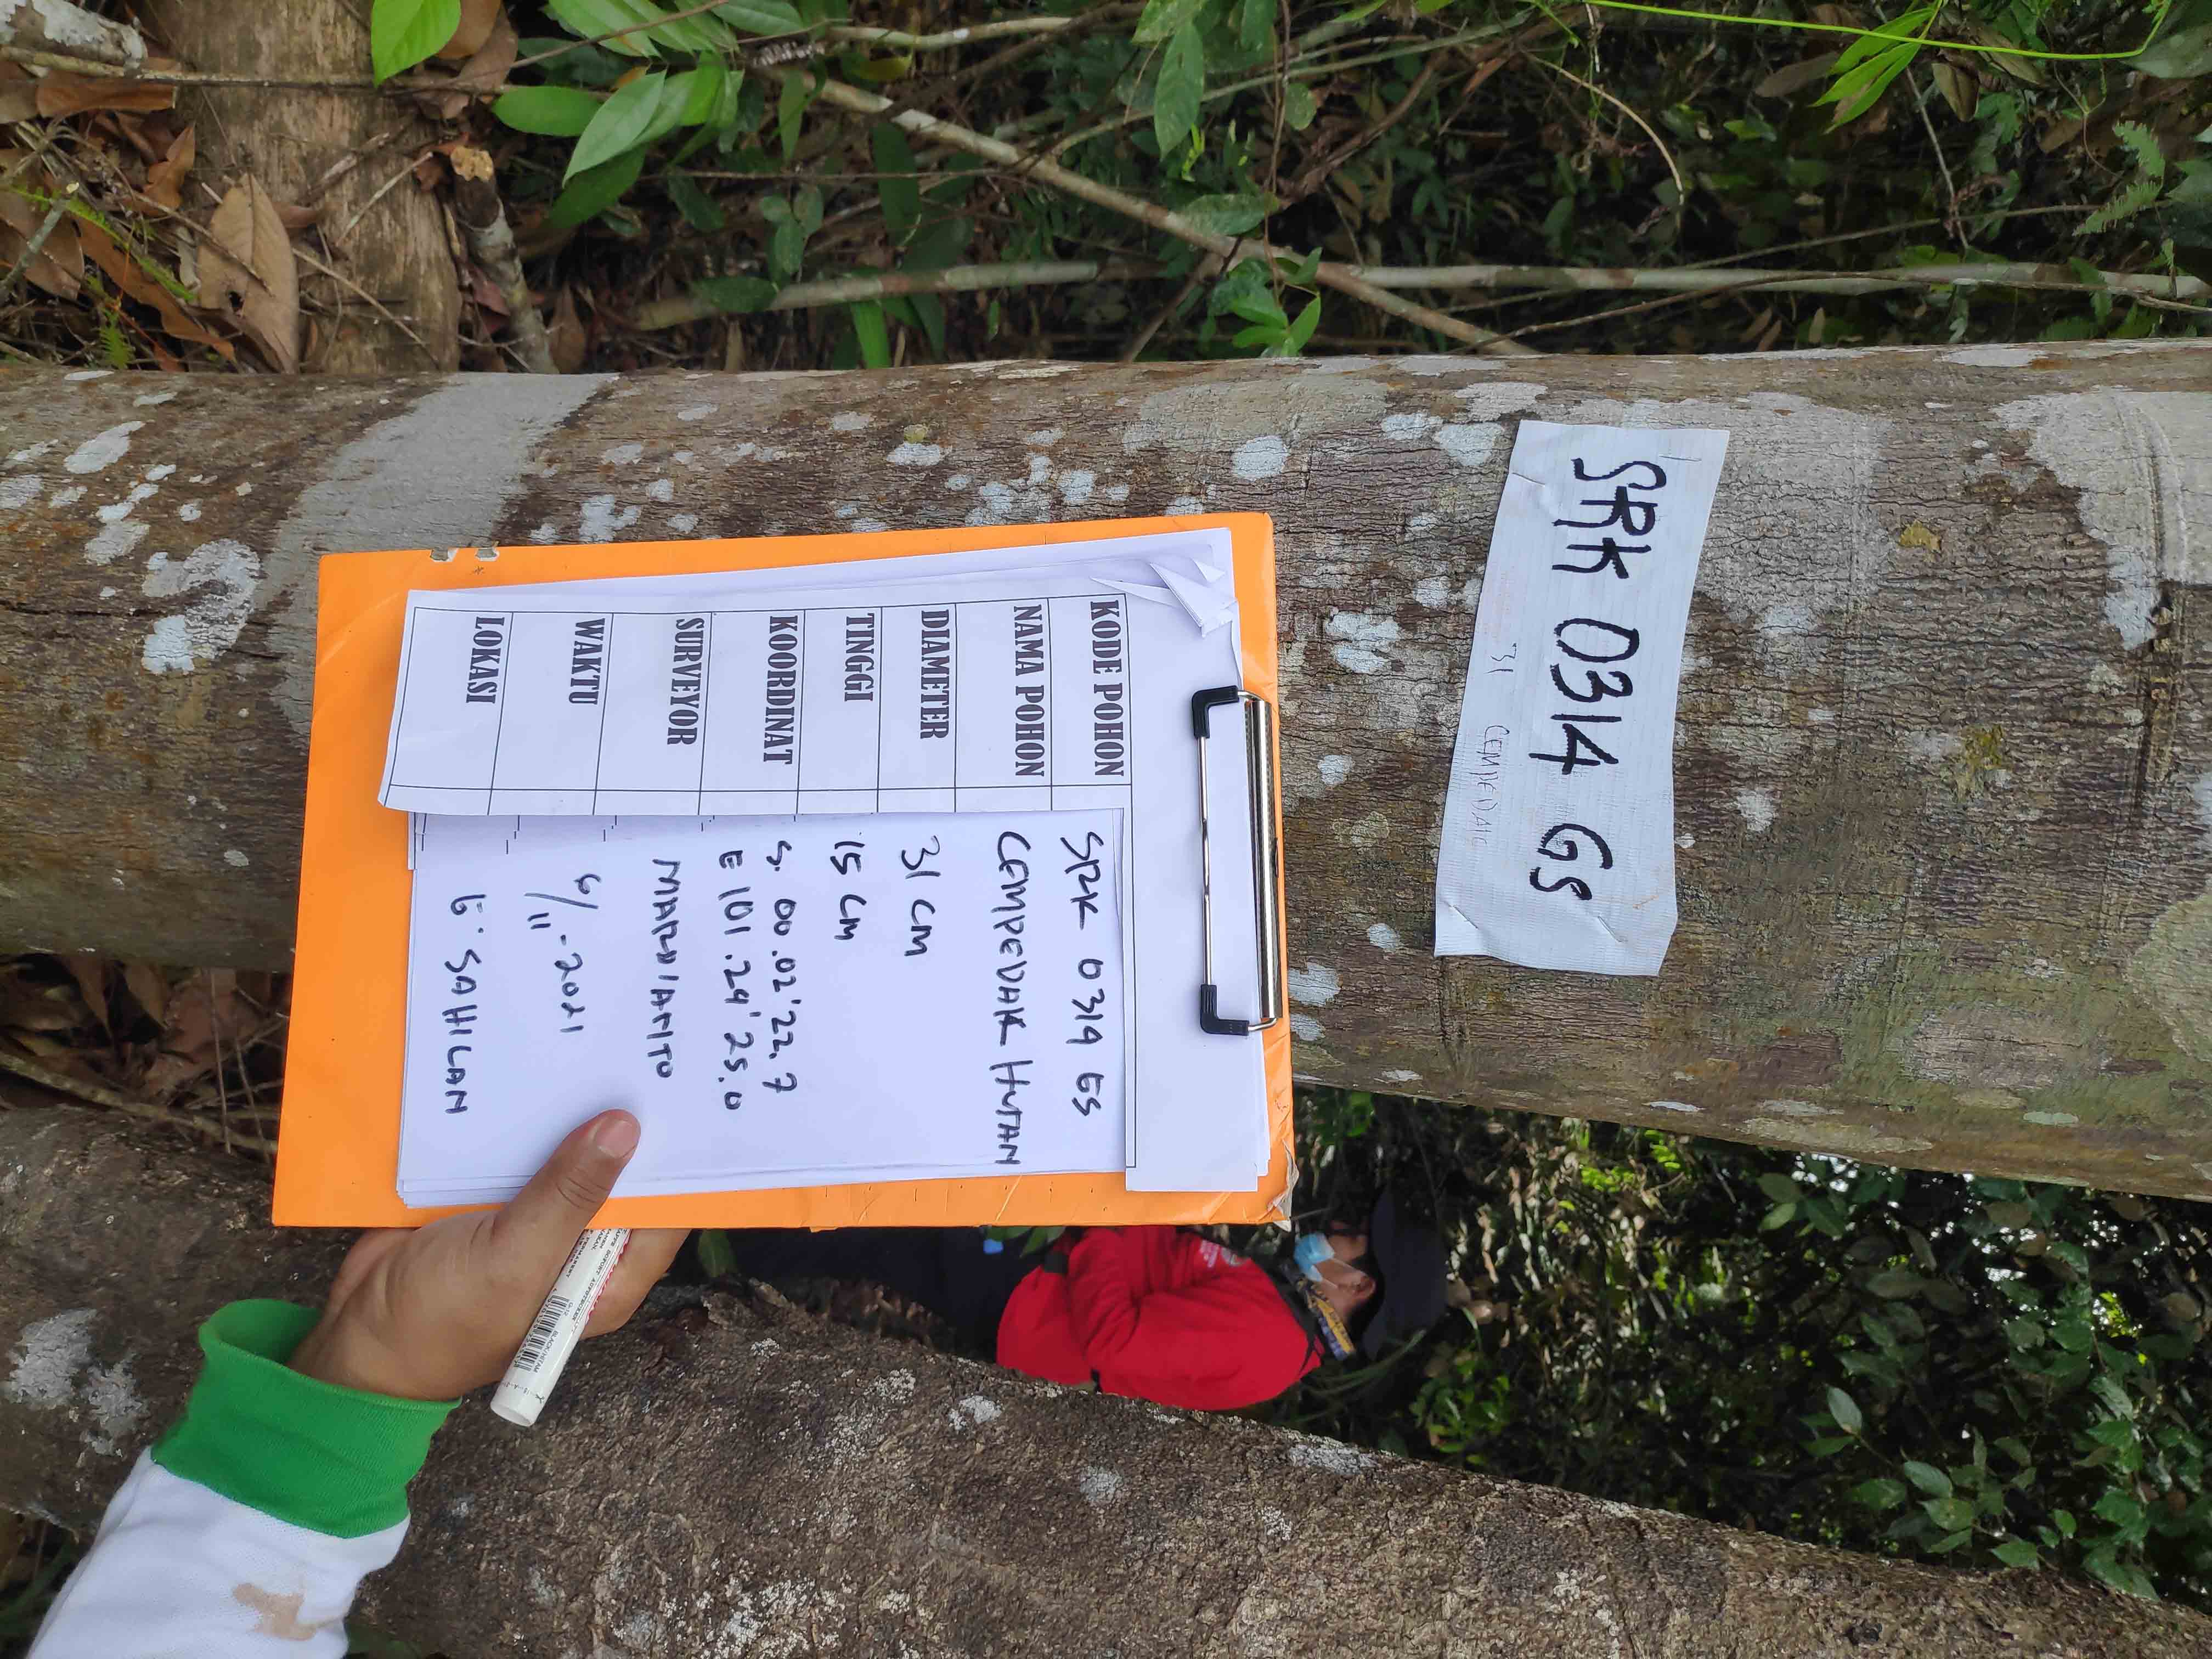 SRK 0314 GS
31 CEMPEDAK
KODE POHON SRK 0314 GS
NAMA POHON CEMPEDAK HUTAN
DIAMETER 31 CM
TINGGI 15 CM
KOORDINAT S. 00.02'22.7
E 101.24'25.0
SURVEYOR MARDIANTO
WAKTU 6/11-2021
LOKASI G. SAHILAN